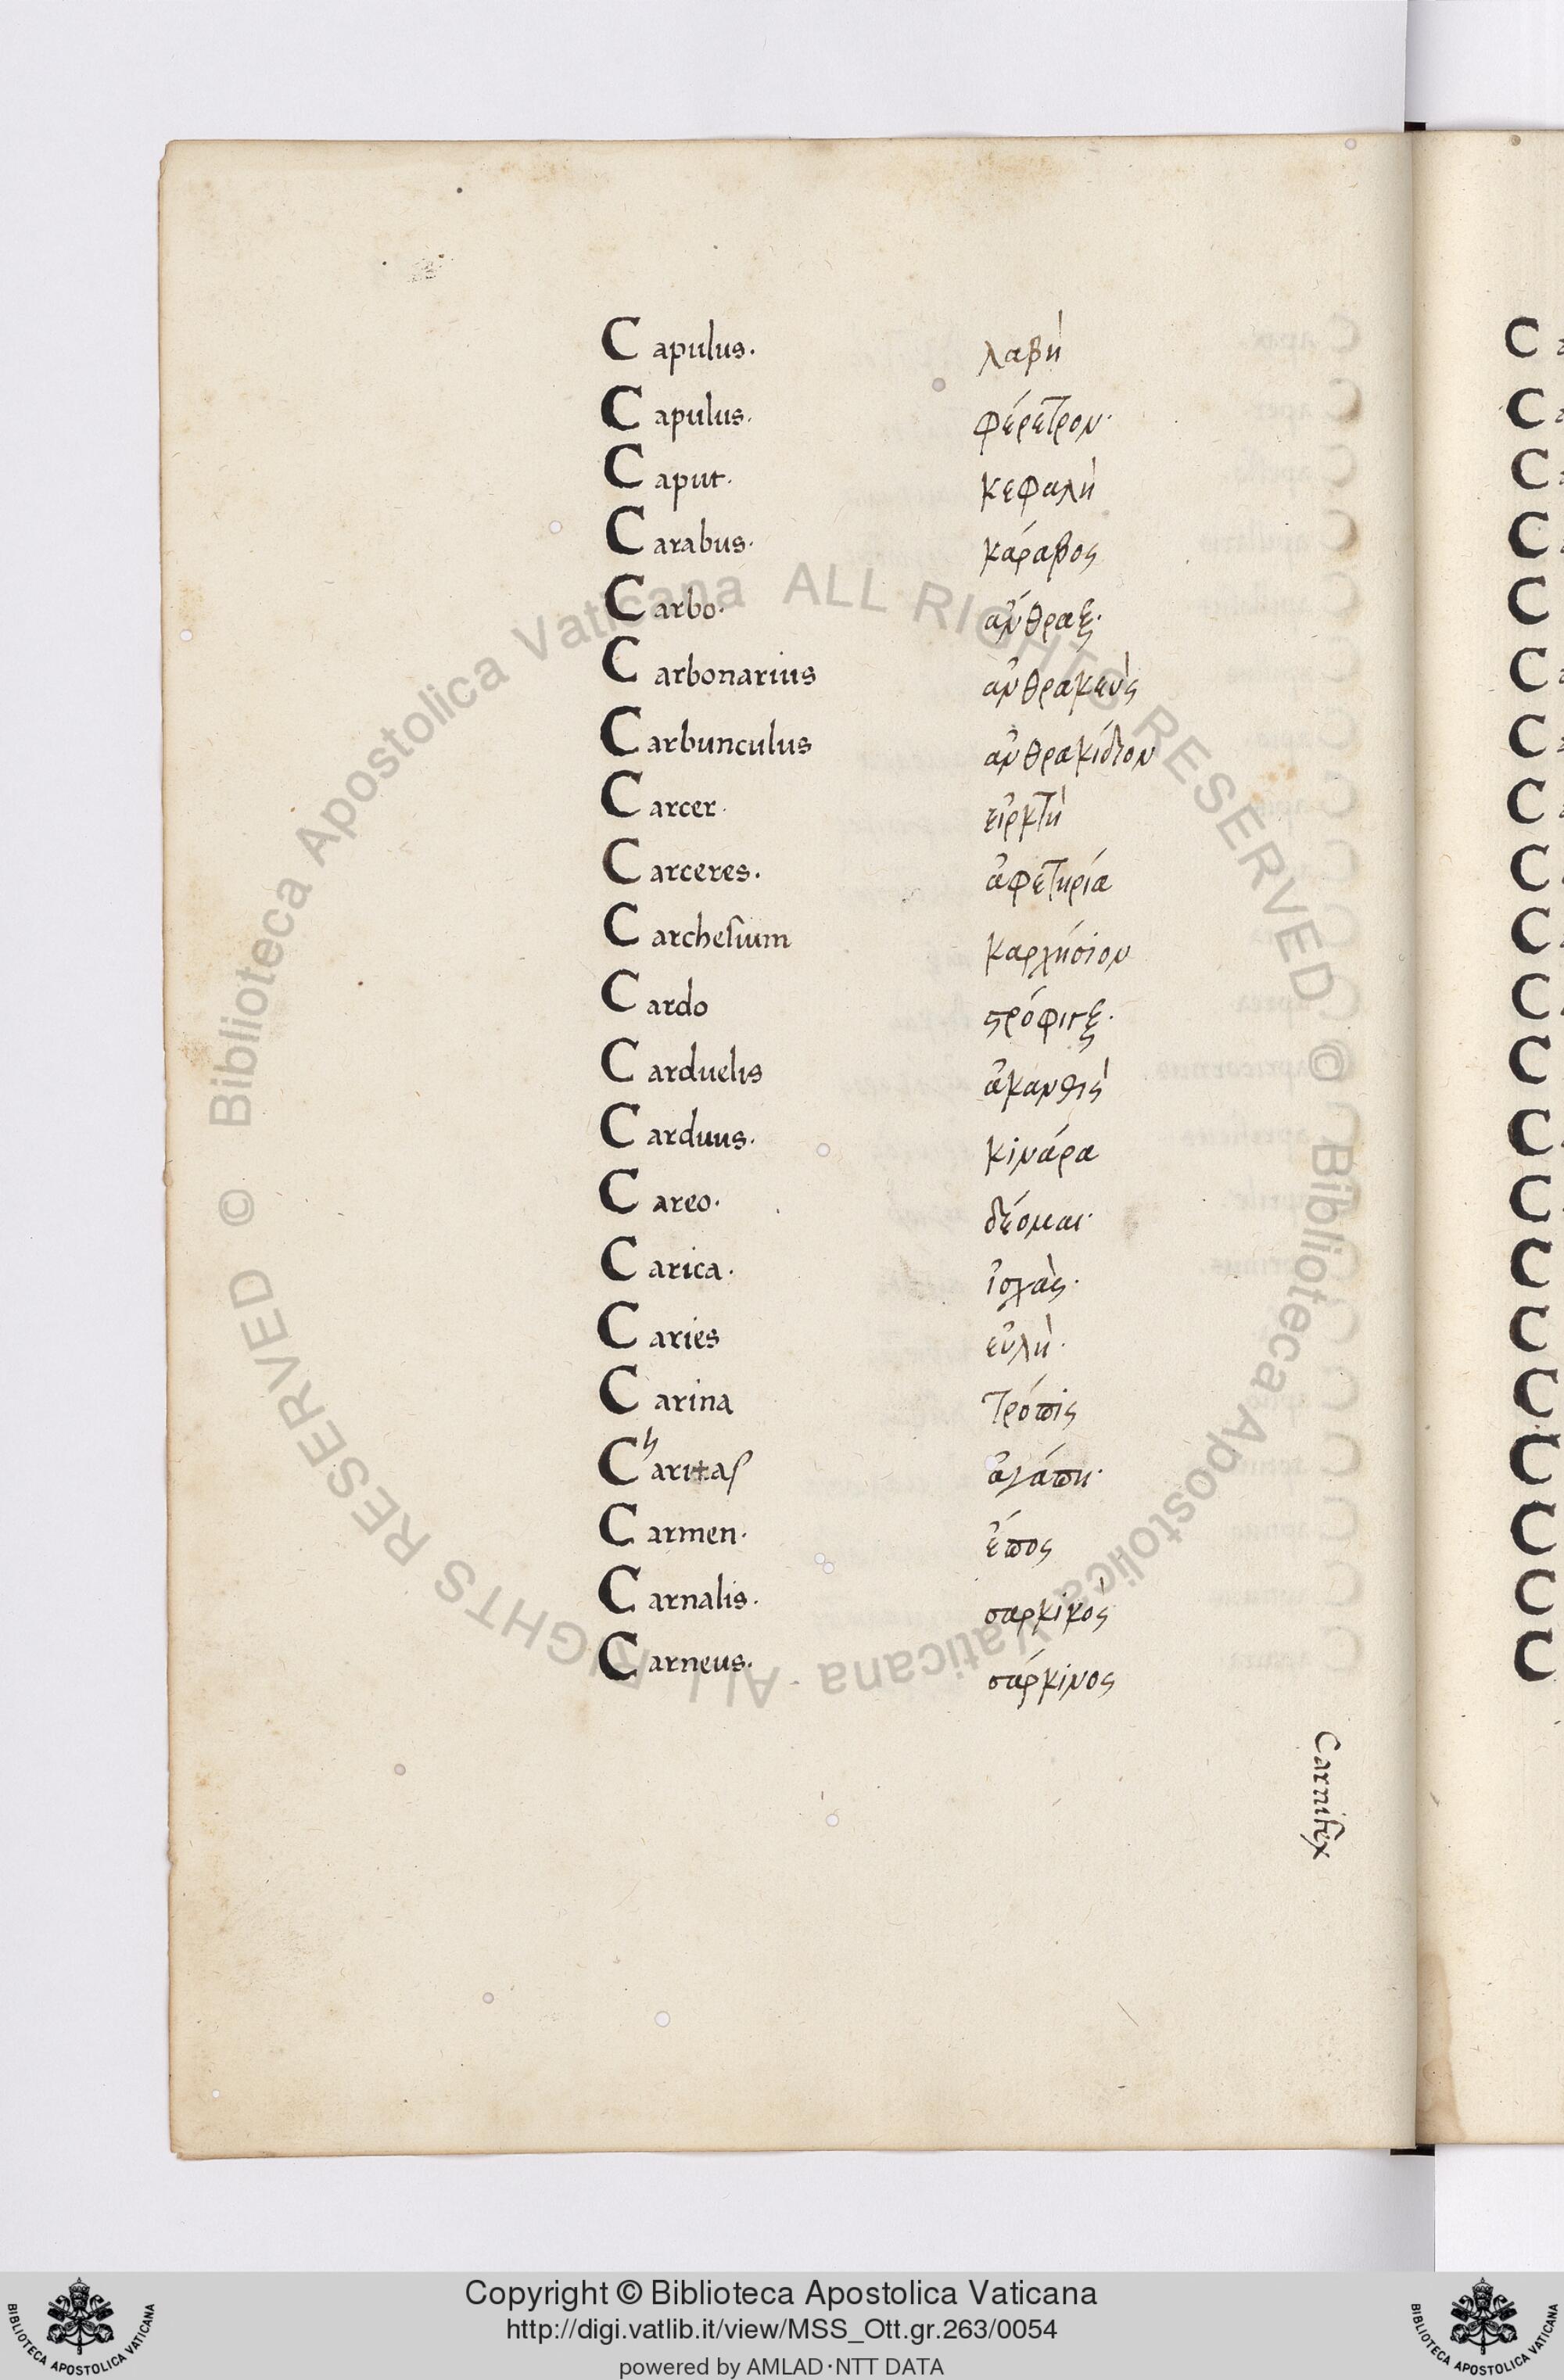 Capulus. λαβή
Capulus. φέρετρον·
Caput. κεφαλή
Carabus. κάραβος
Carbo. ἄνθραξ·
Carbonarius ἀνθρακεὺς
Carbunculus ἀνθρακίδιον
Carcer. εἱρκτή
Carceres. ἀφετηρία
Carchesium καρχήσιον
Cardo στρόφιγξ·
Carduelis ἀκανθίς
Carduus. κινάρα
Careo. δέομαι·
Carica. ἰσχὰς·
Caries εὐλὴ·
Carina τρόπις
Charitas ἀγάπη·
Carmen. ἔπος
Carnalis. σαρκικὸς
Carneus. σάρκινος
Carnifex
© Biblioteca Apostolica Vaticana ALL RIGHTS RESERVED © Biblioteca Apostolica Vaticana ALL RIGHTS RESERVED
Copyright © Biblioteca Apostolica Vaticana
http://digi.vatlib.it/view/MSS_Ott.gr.263/0054
powered by AMLAD·NTT DATA
BIBLIOTECA APOSTOLICA VATICANA
BIBLIOTECA APOSTOLICA VATICANA